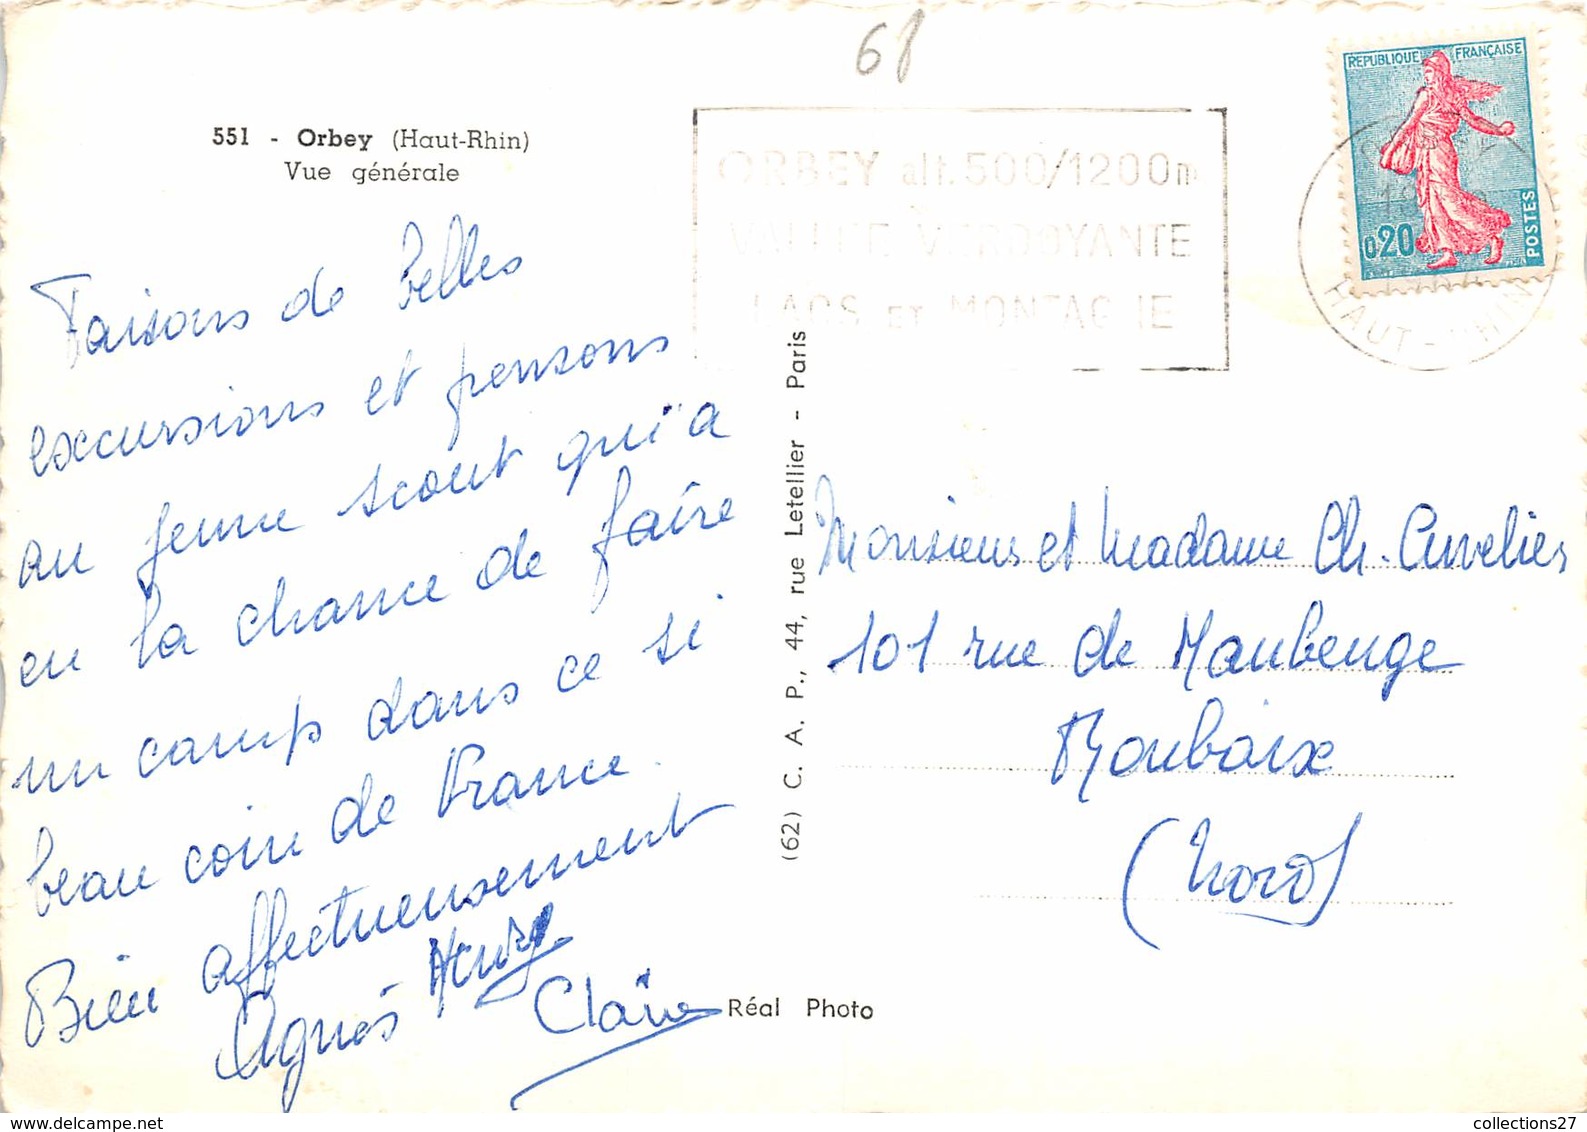 68
551 - Orbey (Haut-Rhin)
Vue générale
ORBEY alt. 500/1200m
VALLEE VERDOYANTE
LACS ET MONTAGNE
REPUBLIQUE FRANÇAISE
0,20
POSTES
HAUT-RHIN
Faisons de belles
excursions et pensons
au jeune scout qui a
eu la chance de faire
un camp dans ce si
beau coin de France.
Bien affectueusement
Agnès
Claire
(62) C. A. P., 44, rue Letellier - Paris
Monsieur et Madame Ch. Cuvelier
101 rue de Maubeuge
Roubaix
(Nord)
Réal Photo
collections27